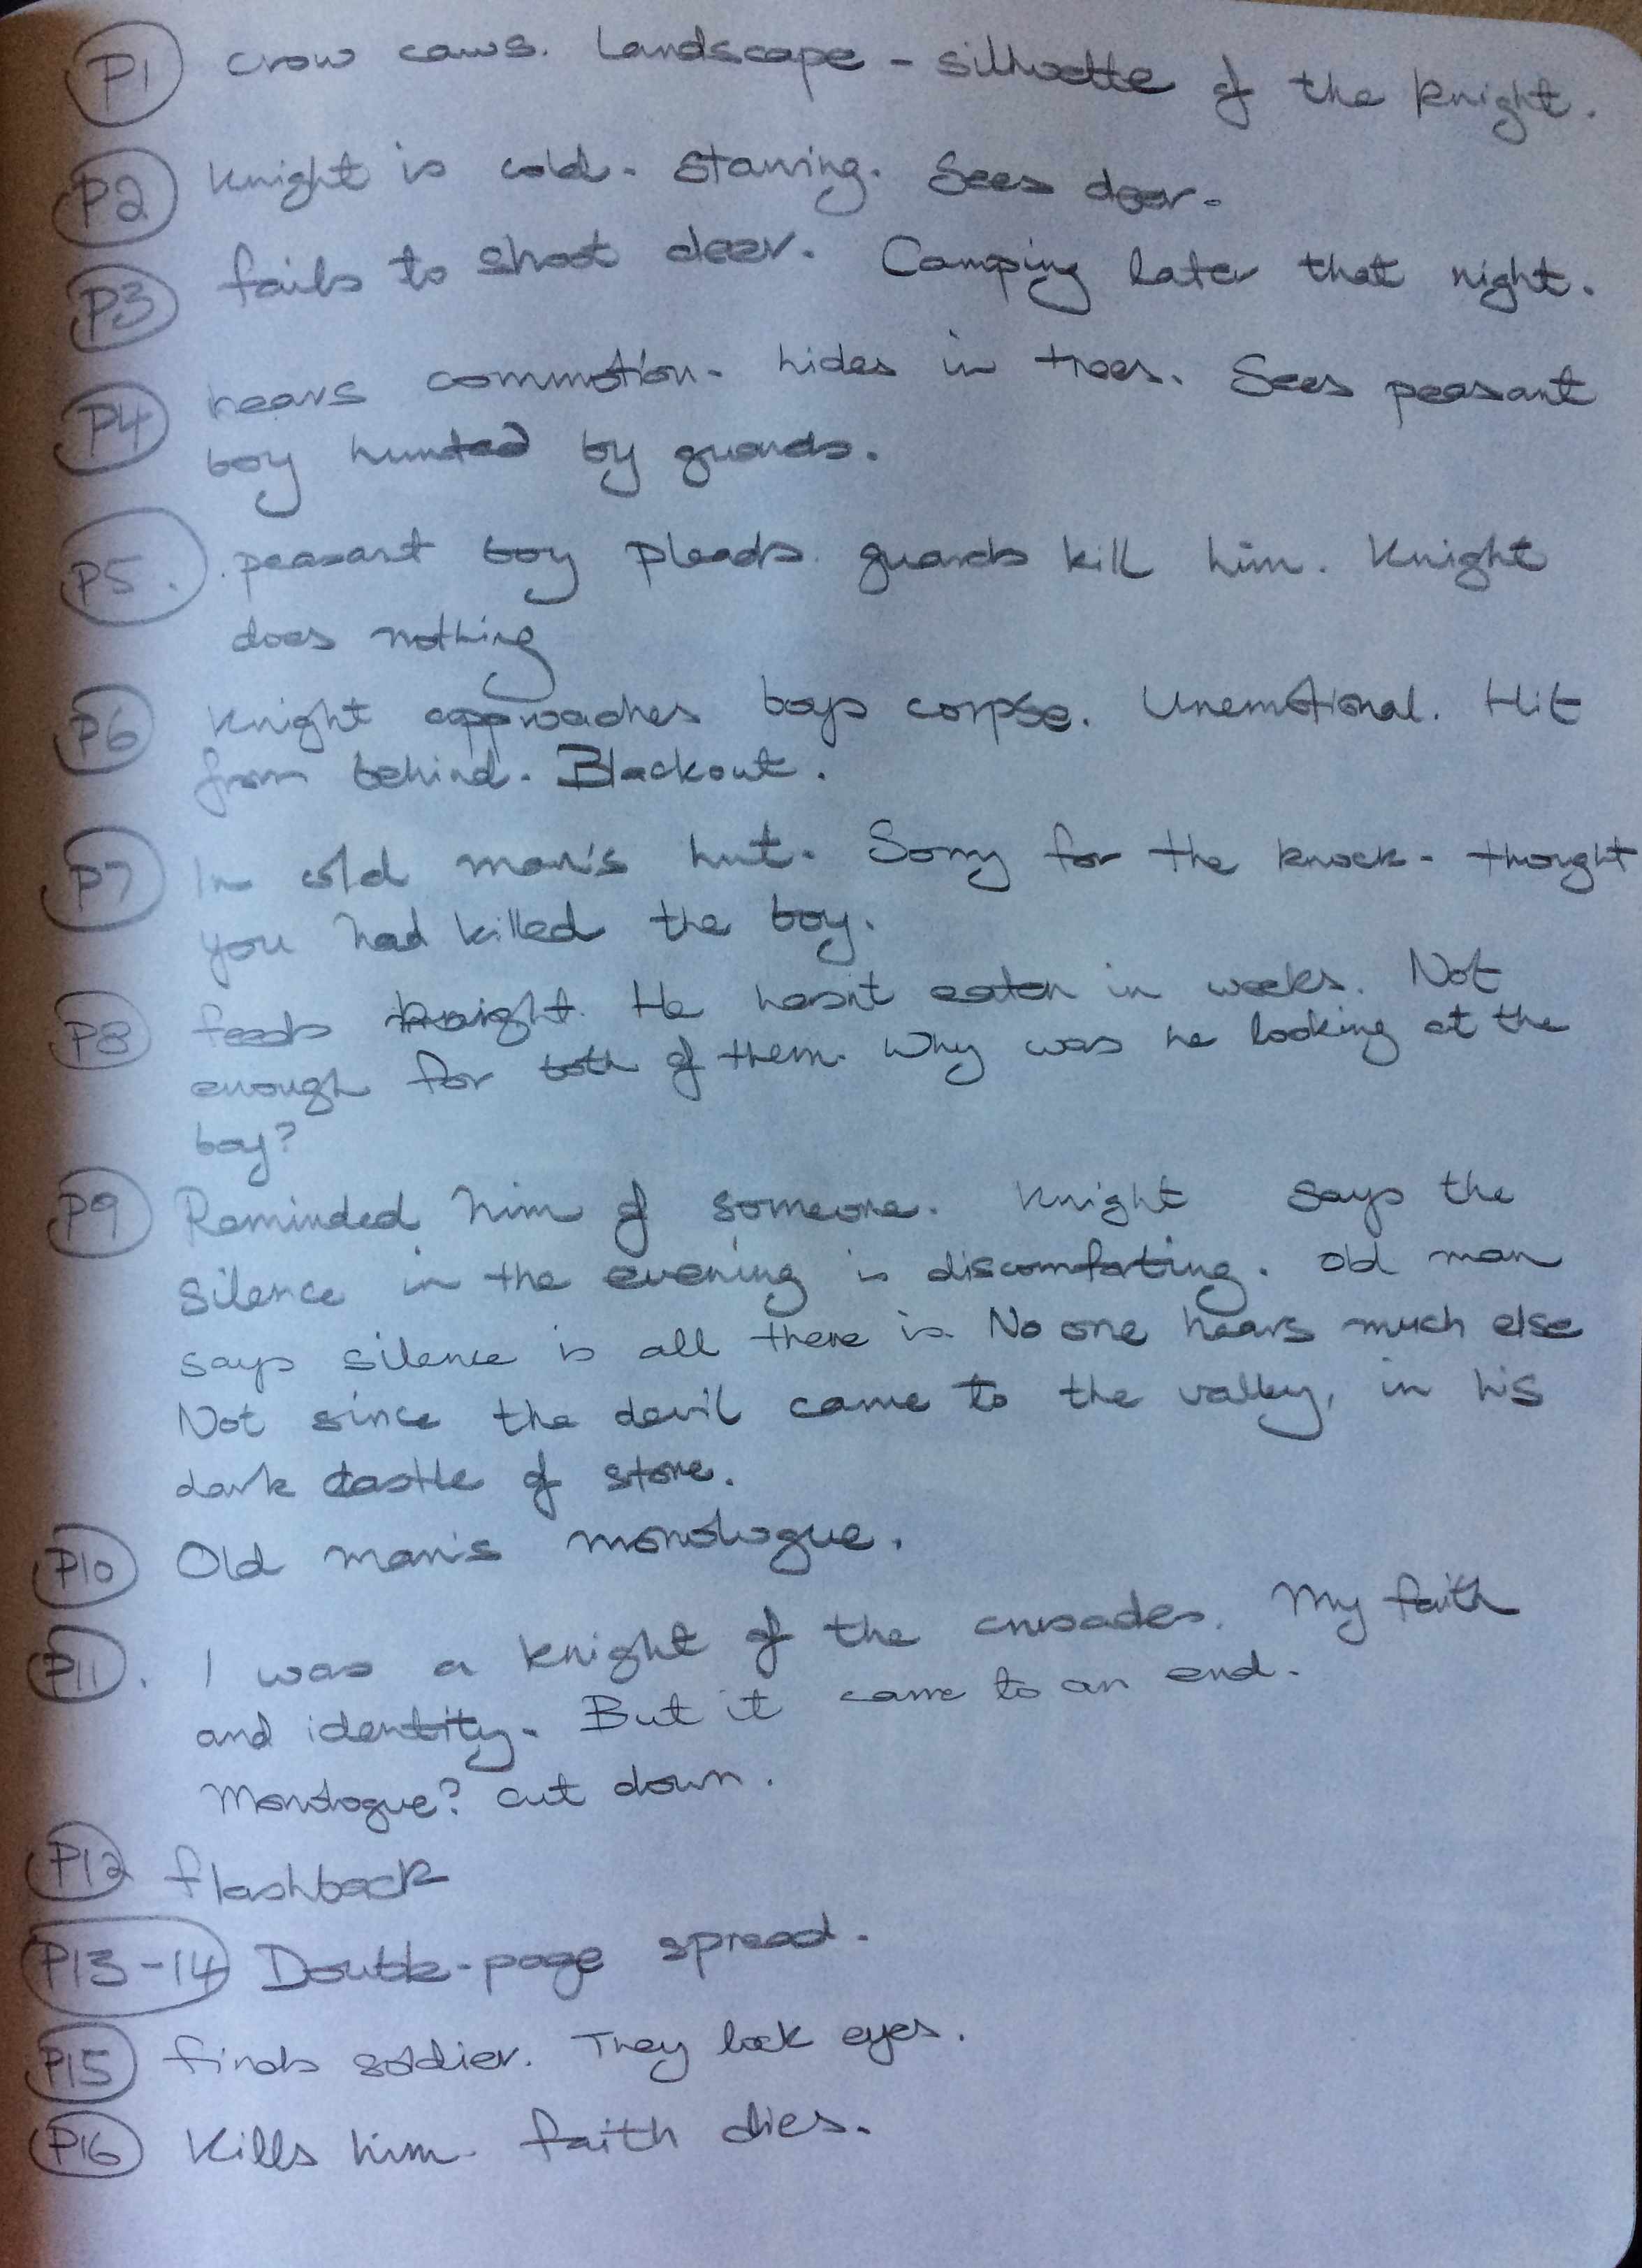 P1 Crow caws. Landscape - silhuette of the knight.
P2 Knight is cold. Starving. Sees deer.
P3 fails to shoot deer. Camping later that night.
P4 hears commotion. hides in trees. Sees peasant
boy hunted by guards.
P5. peasant boy pleads. guards kill him. Knight
does nothing
P6 Knight approaches boys corpse. Unemotional. Hit
from behind. Blackout.
P7 In old man's hut. Sorry for the knock - thought
you had killed the boy.
P8 feeds knight. He hasn't eaten in weeks. Not
enough for both of them. Why was he looking at the
boy?
P9 Reminded him of someone. Knight says the
silence in the evening is discomforting. Old man
says silence is all there is. No one hears much else
Not since the devil came to the valley, in his
dark castle of stone.
P10 Old man's monologue.
P11. I was a knight of the crusades. My faith
and identity. But it came to an end.
Monologue? cut down.
P12 flashback
P13-14 Double-page spread.
P15 finds soldier. They lock eyes.
P16 Kills him. faith dies.